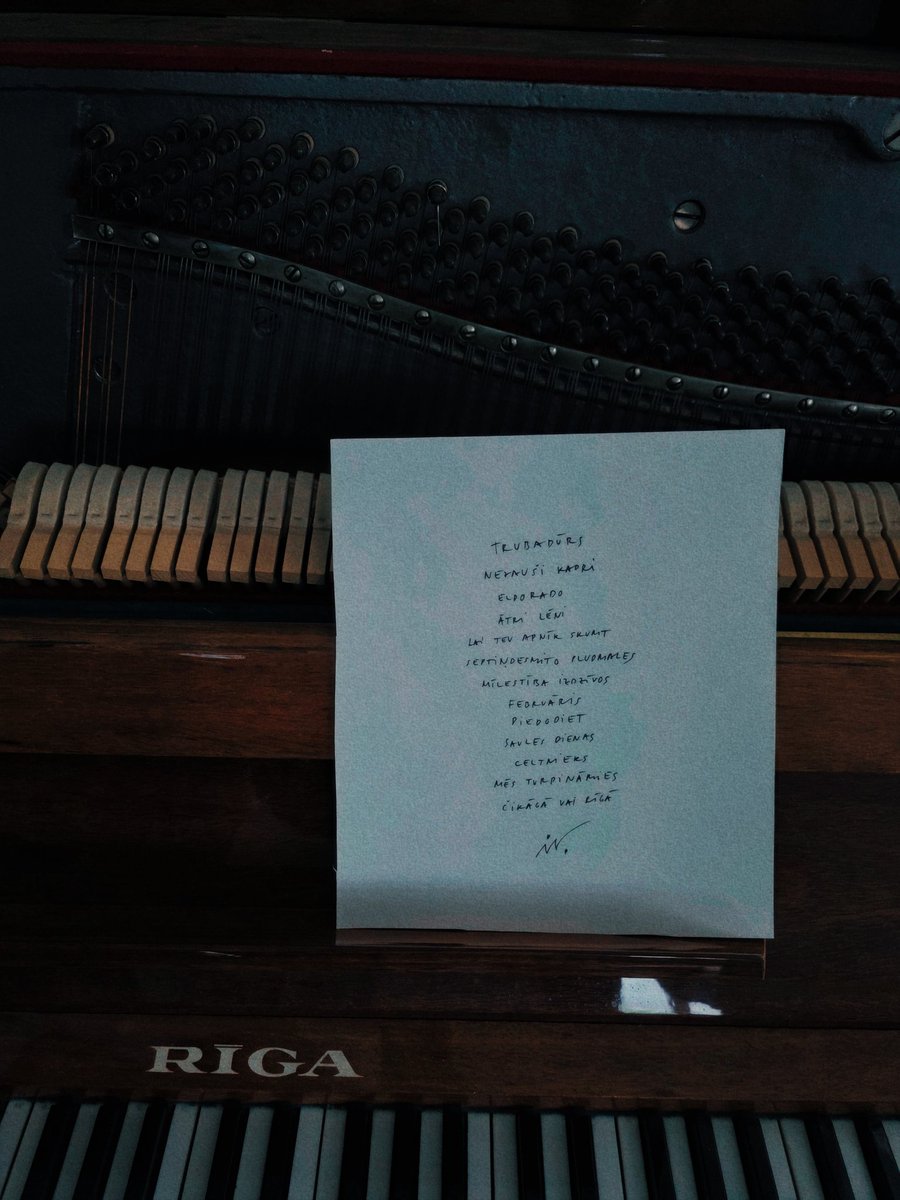 TRUBADŪRS
NEZAUŠI KADRI
ELDORADO
ĀTRI LĒNI
LAI TEV APNĪK SKUMT
SEPTIŅDESMITO PLUDMALES
MĪLESTĪBA IZDZĪVOS
FEBRUĀRIS
PIEDODIET
SAULES DIENAS
CELTNIEKS
MĒS TURPINĀMIES
ČIKĀGĀ VAI RĪGĀ
RĪGA